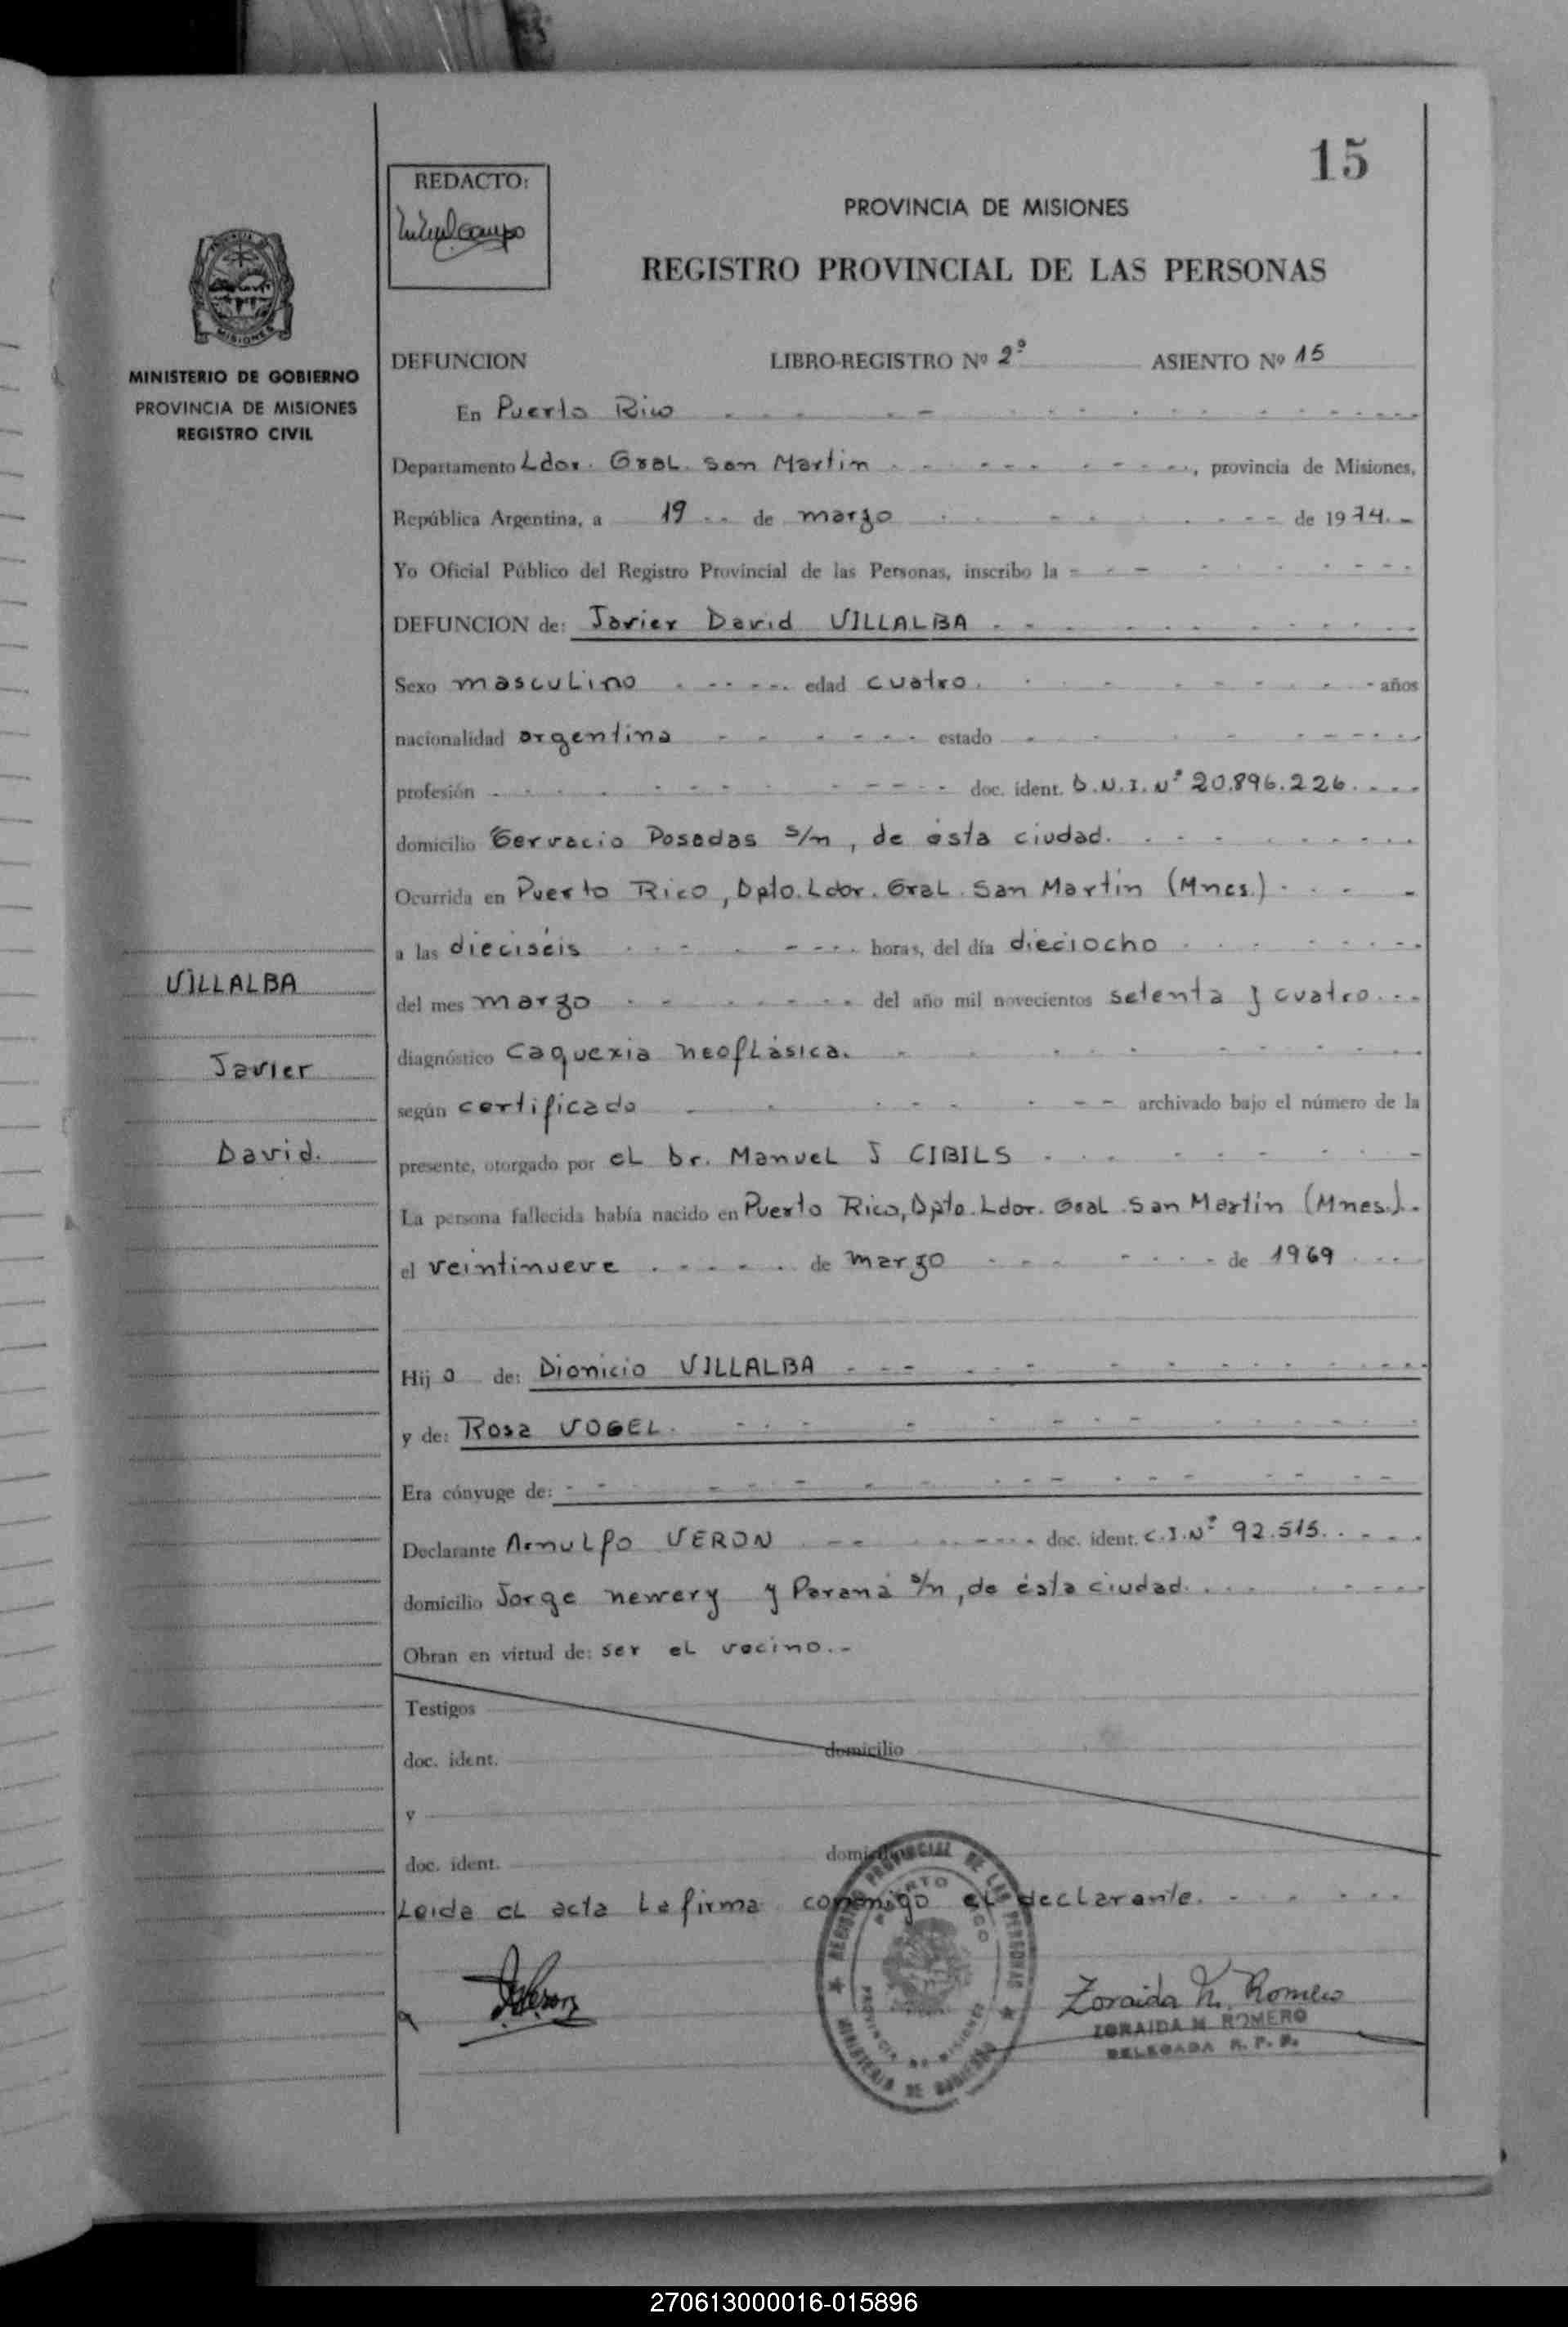 15
REDACTO:
PROVINCIA DE MISIONES
REGISTRO PROVINCIAL DE LAS PERSONAS
MINISTERIO DE GOBIERNO
PROVINCIA DE MISIONES
REGISTRO CIVIL
DEFUNCION LIBRO-REGISTRO Nº 2º ASIENTO Nº 15
En Puerto Rico
Departamento Ldor. Gral. San Martin, provincia de Misiones,
República Argentina, a 19 de marzo de 1974.-
Yo Oficial Público del Registro Provincial de las Personas, inscribo la
DEFUNCION de: Javier David VILLALBA
Sexo masculino edad cuatro años
nacionalidad argentina estado
profesión doc. ident. D.N.I. Nº 20.896.226
domicilio Gervacio Posadas s/n, de ésta ciudad.
Ocurrida en Puerto Rico, Dpto. Ldor. Gral. San Martín (Mnes.)
a las dieciséis horas, del día dieciocho
del mes marzo del año mil novecientos setenta y cuatro
diagnóstico Caquexia neoflásica.
según certificado archivado bajo el número de la
presente, otorgado por el Dr. Manuel J CIBILS
La persona fallecida había nacido en Puerto Rico, Dpto. Ldor. Gral. San Martín (Mnes.).
el veintinueve de marzo de 1969
VILLALBA
Javier
David.
Hijo de: Dionicio VILLALBA
y de: Rosa VOGEL.
Era cónyuge de:
Declarante Arnulfo VERON doc. ident. C.I. Nº 92.515.
domicilio Jorge newery y Paraná s/n, de ésta ciudad.
Obran en virtud de: ser el vecino.-
Testigos
doc. ident. domicilio
y
doc. ident. domicilio
Leida el acta la firma conmigo el declarante.
REGISTRO PROVINCIAL DE LAS PERSONAS
PUERTO RICO
PROVINCIA DE MISIONES
MINISTERIO DE GOBIERNO
Zoraida M. Romero
ZORAIDA M ROMERO
DELEGADA R. P. P.
270613000016-015896